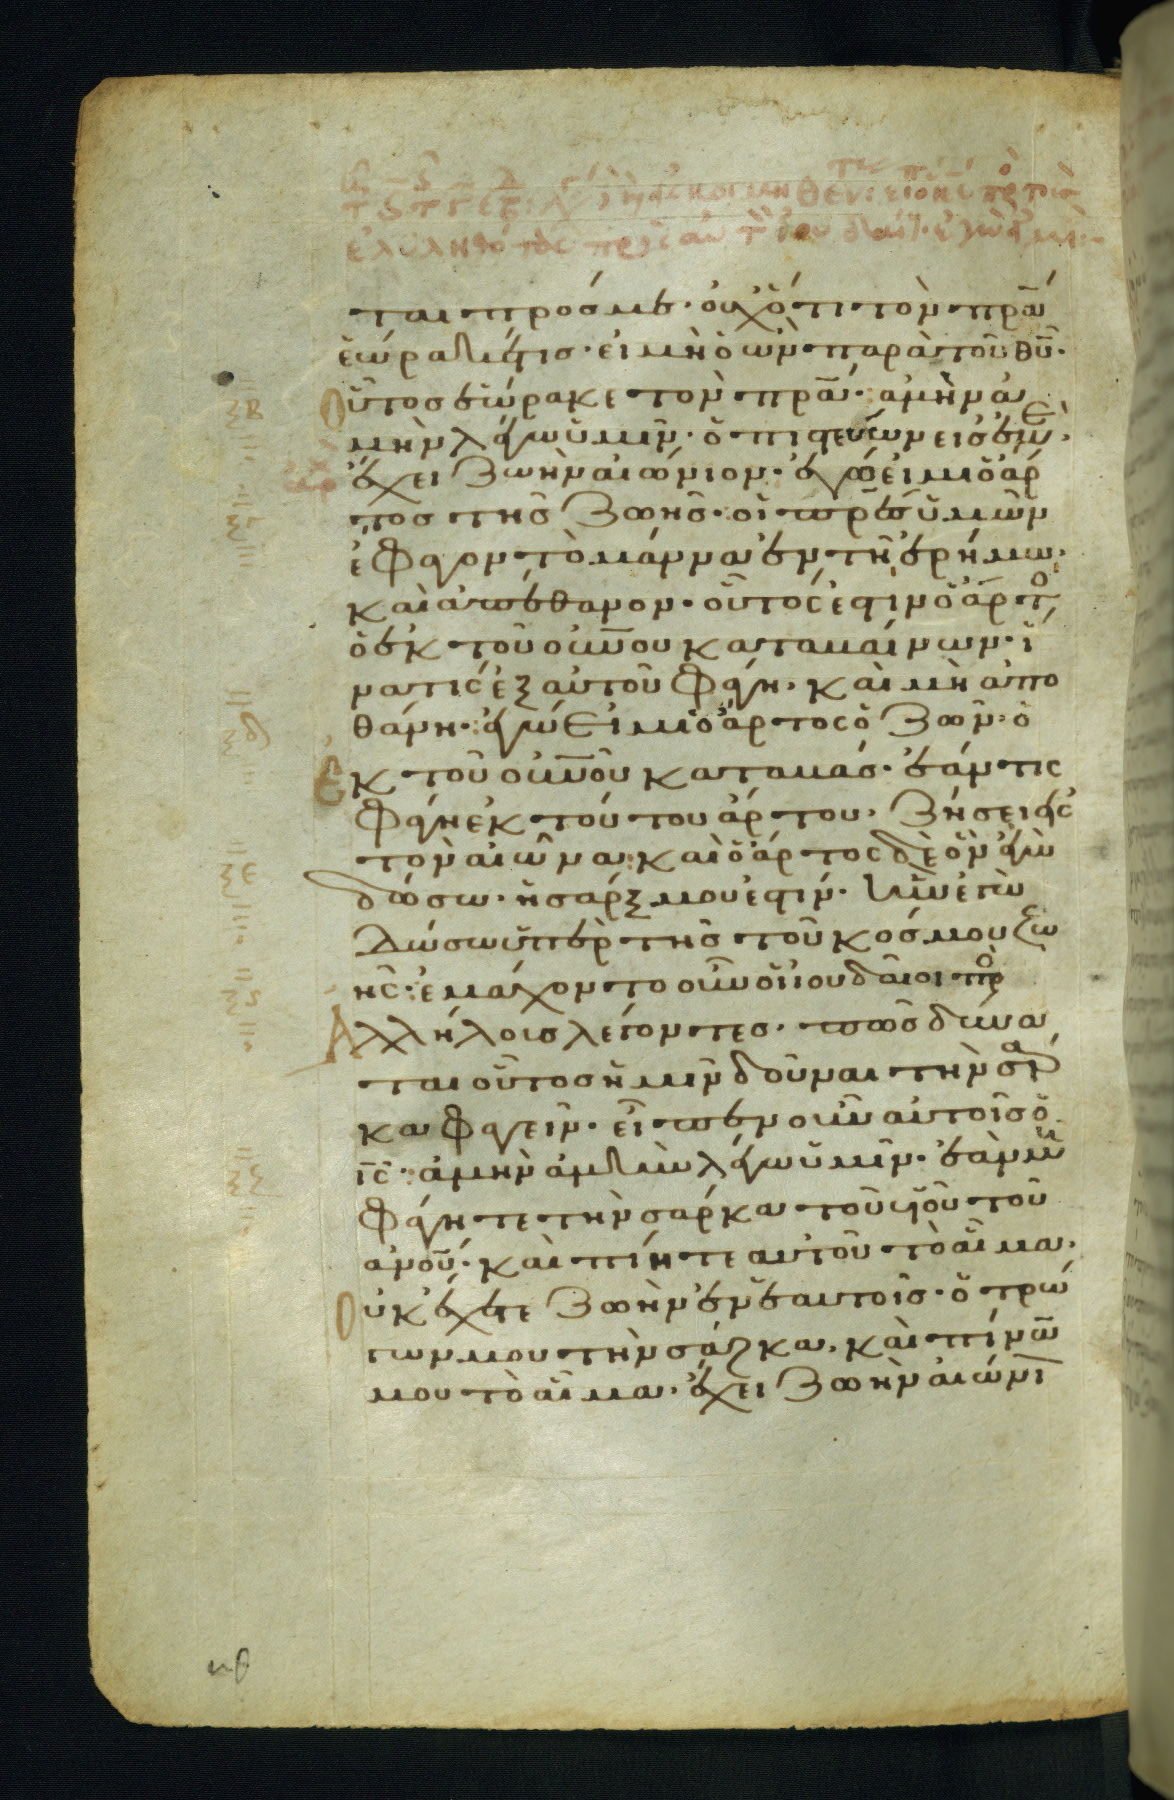 ται πρόσ με· οὐχ ὅτι τὸν πρα
ἑώρακέ τισ· εἰ μὴ ὁ ὢν παρὰ τοῦ θυ·
οὗτοσ ἑώρακε τὸν πρα· ἀμὴν ἀ
μὴν λέγω ὑμῖν· ὁ πιστεύων εἰσ ἐμὲ·
ἔχει ζωὴν αἰώνιον· ἐγώ εἰμι ὁ ἄρ
τοσ τῆσ ζωῆσ· οἱ πρεσ ὑμῶν
ἔφαγον τὸ μάννα ἐν τῆ ἐρήμω·
καὶ ἀπέθανον· οὗτός ἐστιν ὁ ἄρτο
ὁ ἐκ τοῦ οὐνου καταβαίνων· ἵ
να τις ἐξ αὐτοῦ φάγη· καὶ μὴ ἀπο
θάνη· ἐγώ εἰμι ὁ ἄρτος ὁ ζῶν· ὁ
ἐκ τοῦ οὐνοῦ καταβάσ· ἐάν τις
φάγη ἐκ τούτου τοῦ ἄρτου· ζήσει εἰς
τὸν αἰῶνα· καὶ ὁ ἄρτος δὲ ὃν ἐγὼ
δώσω· ἡ σάρξ μου ἐστίν· ἣν ἐγὼ
δώσω ὑπὲρ τῆσ τοῦ κόσμου ζω
ῆς· ἐμάχοντο οὖν οἱ ἰουδαῖοι προ
ἀλλήλοισ λέγοντεσ· πῶσ δύνα
ται οὗτοσ ἡμῖν δοῦναι τὴν σάρ
κα φαγεῖν· εἶπεν οὖν αὐτοῖσ ὁ
ισ· ἀμὴν ἀμὴν λέγω ὑμῖν· ἐὰν μὴ
φάγητε τὴν σάρκα τοῦ υἱοῦ τοῦ
ανου· καὶ πίητε αὐτοῦ τὸ αἷμα·
οὐκ ἔχετε ζωὴν ἐν ἑαυτοῖσ· ὁ τρώ
γων μου τὴν σάρκα· καὶ πίνων
μου τὸ αἷμα· ἔχει ζωὴν αἰώνι